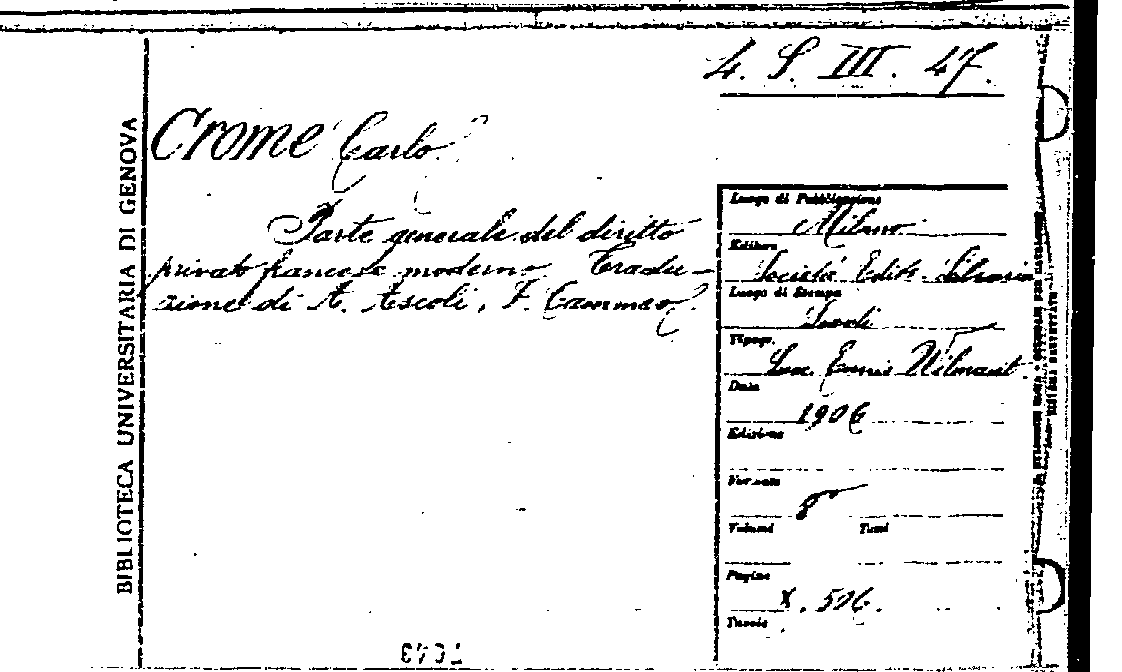 4. S. III. 47.
BIBLIOTECA UNIVERSITARIA DI GENOVA
Crome Carlo
Parte generale del diritto
privato francese moderno. Tradu-
zione di A. Ascoli, F. Cammeo.
Luogo di Pubblicazione
Milano
Editore
Società Edit. Libraria
Luogo di Stampa
Tipogr.
Data
1906
Edizione
Formato
8°
Volumi Tomi
Pagine
X. 506.
Tavole